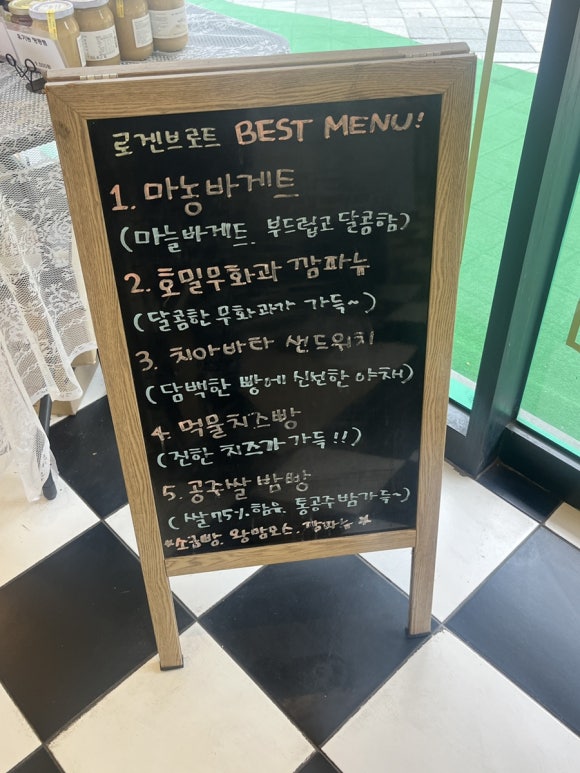 로겐브로트 BEST MENU!
1. 마농바게트
(마늘바게트. 부드럽고 달콤함)
2. 호밀무화과 깜파뉴
(달콤한 무화과가 가득~)
3. 치아바타 샌드위치
(담백한 빵에 신선한 야채)
4. 먹물치즈빵
(진한 치즈가 가득!!)
5. 공주쌀 밤빵
(쌀75%함유. 통공주밤가득~)
소금빵. 왕맘모스. 깜파뉴